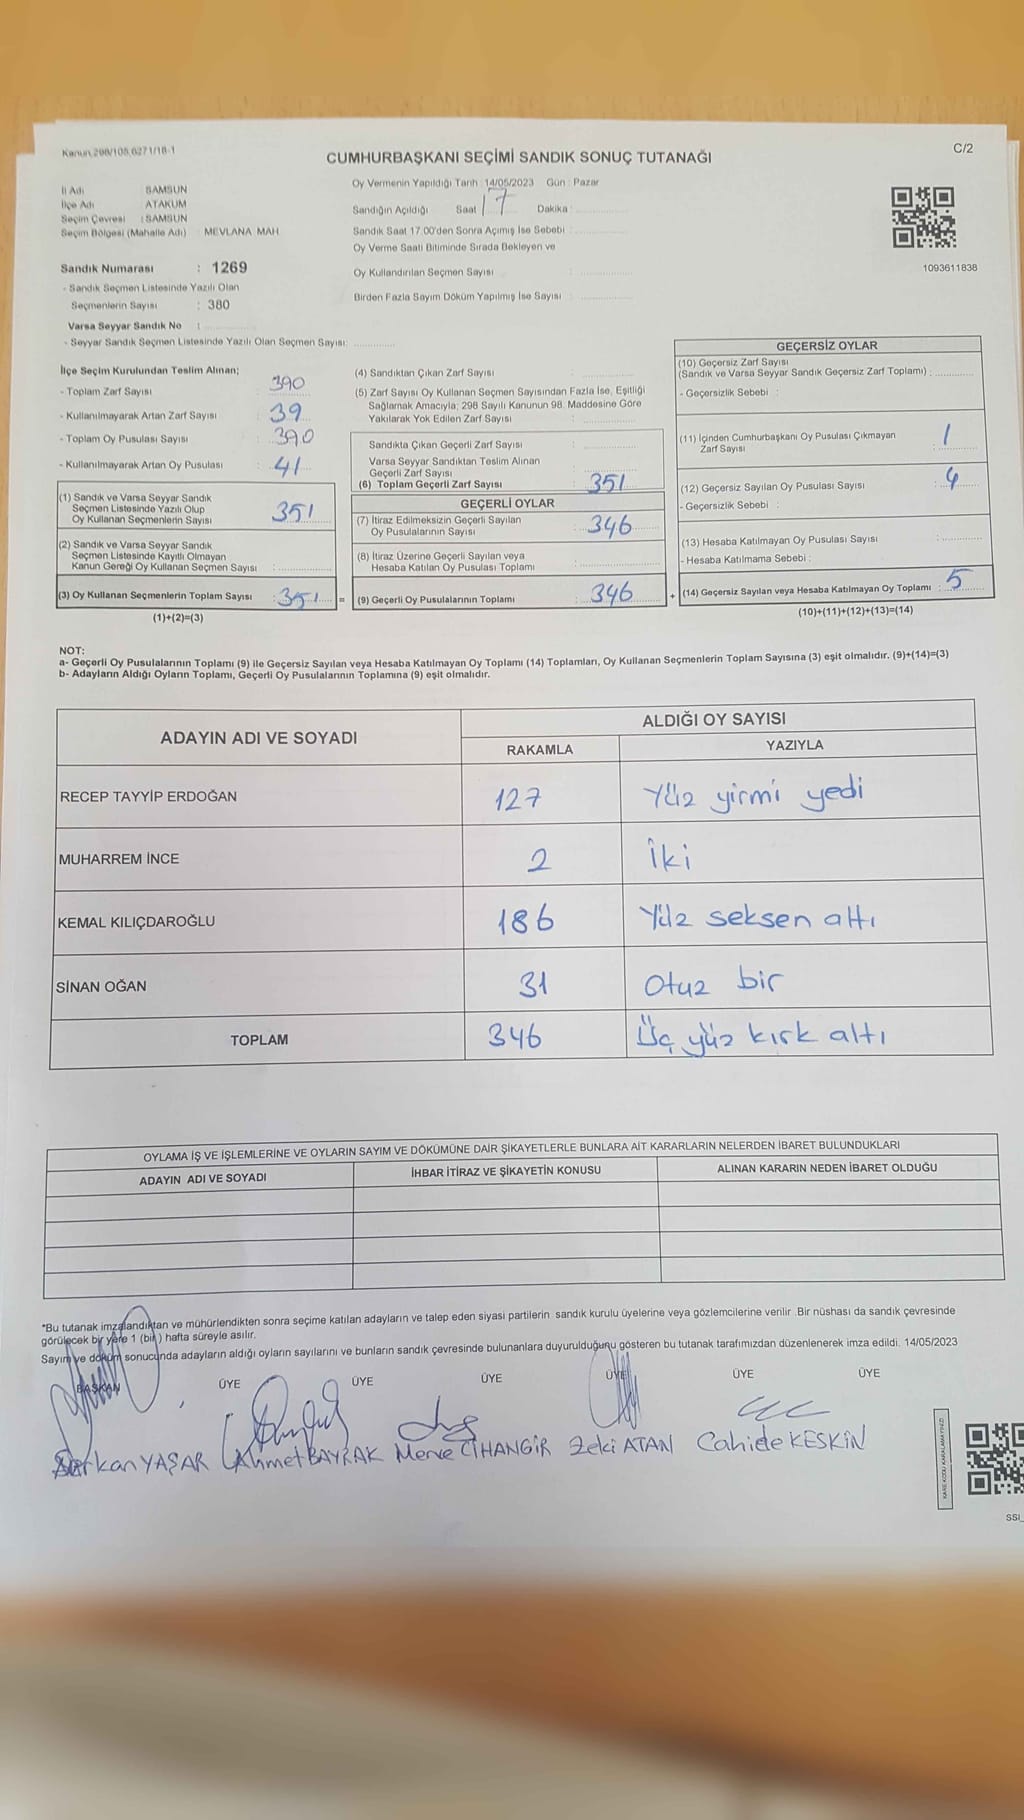 Kanun 298/105,6271/18-1
C/2
CUMHURBAŞKANI SEÇİMİ SANDIK SONUÇ TUTANAĞI
İl Adı SAMSUN
İlçe Adı ATAKUM
Seçim Çevresi : SAMSUN
Seçim Bölgesi (Mahalle Adı) : MEVLANA MAH
Sandık Numarası : 1269
- Sandık Seçmen Listesinde Yazılı Olan
Seçmenlerin Sayısı : 380
Varsa Seyyar Sandık No :
- Seyyar Sandık Seçmen Listesinde Yazılı Olan Seçmen Sayısı:
Oy Vermenin Yapıldığı Tarih : 14/05/2023 Gün : Pazar
Sandığın Açıldığı Saat 17 Dakika :
Sandık Saat 17.00'den Sonra Açımış İse Sebebi :
Oy Verme Saati Bitiminde Sırada Bekleyen ve
Oy Kullandırılan Seçmen Sayısı :
Birden Fazla Sayım Döküm Yapılmış İse Sayısı :
1093611838
İlçe Seçim Kurulundan Teslim Alınan;
- Toplam Zarf Sayısı : 390
- Kullanılmayarak Artan Zarf Sayısı : 39
- Toplam Oy Pusulası Sayısı : 390
- Kullanılmayarak Artan Oy Pusulası : 41
(1) Sandık ve Varsa Seyyar Sandık
Seçmen Listesinde Yazılı Olup
Oy Kullanan Seçmenlerin Sayısı : 351
(2) Sandık ve Varsa Seyyar Sandık
Seçmen Listesinde Kayıtlı Olmayan
Kanun Gereği Oy Kullanan Seçmen Sayısı :
(3) Oy Kullanan Seçmenlerin Toplam Sayısı : 351 =
(1)+(2)=(3)
(4) Sandıktan Çıkan Zarf Sayısı :
(5) Zarf Sayısı Oy Kullanan Seçmen Sayısından Fazla İse, Eşitliği
Sağlamak Amacıyla; 298 Sayılı Kanunun 98. Maddesine Göre
Yakılarak Yok Edilen Zarf Sayısı :
Sandıkta Çıkan Geçerli Zarf Sayısı :
Varsa Seyyar Sandıktan Teslim Alınan
Geçerli Zarf Sayısı :
(6) Toplam Geçerli Zarf Sayısı : 351
GEÇERLİ OYLAR
(7) İtiraz Edilmeksizin Geçerli Sayılan
Oy Pusulalarının Sayısı : 346
(8) İtiraz Üzerine Geçerli Sayılan veya
Hesaba Katılan Oy Pusulası Toplamı :
(9) Geçerli Oy Pusulalarının Toplamı : 346 +
GEÇERSİZ OYLAR
(10) Geçersiz Zarf Sayısı
(Sandık ve Varsa Seyyar Sandık Geçersiz Zarf Toplamı) :
- Geçersizlik Sebebi :
(11) İçinden Cumhurbaşkanı Oy Pusulası Çıkmayan
Zarf Sayısı : 1
(12) Geçersiz Sayılan Oy Pusulası Sayısı : 4
- Geçersizlik Sebebi :
(13) Hesaba Katılmayan Oy Pusulası Sayısı :
- Hesaba Katılmama Sebebi :
(14) Geçersiz Sayılan veya Hesaba Katılmayan Oy Toplamı : 5
(10)+(11)+(12)+(13)=(14)
NOT:
a- Geçerli Oy Pusulalarının Toplamı (9) ile Geçersiz Sayılan veya Hesaba Katılmayan Oy Toplamı (14) Toplamları, Oy Kullanan Seçmenlerin Toplam Sayısına (3) eşit olmalıdır. (9)+(14)=(3)
b- Adayların Aldığı Oyların Toplamı, Geçerli Oy Pusulalarının Toplamına (9) eşit olmalıdır.
ADAYIN ADI VE SOYADI ALDIĞI OY SAYISI
RAKAMLA YAZIYLA
RECEP TAYYİP ERDOĞAN 127 Yüz yirmi yedi
MUHARREM İNCE 2 İki
KEMAL KILIÇDAROĞLU 186 Yüz seksen altı
SİNAN OĞAN 31 Otuz bir
TOPLAM 346 Üç yüz kırk altı
OYLAMA İŞ VE İŞLEMLERİNE VE OYLARIN SAYIM VE DÖKÜMÜNE DAİR ŞİKAYETLERLE BUNLARA AİT KARARLARIN NELERDEN İBARET BULUNDUKLARI
ADAYIN ADI VE SOYADI İHBAR İTİRAZ VE ŞİKAYETİN KONUSU ALINAN KARARIN NEDEN İBARET OLDUĞU
*Bu tutanak imzalandıktan ve mühürlendikten sonra seçime katılan adayların ve talep eden siyasi partilerin sandık kurulu üyelerine veya gözlemcilerine verilir .Bir nüshası da sandık çevresinde
görülecek bir yere 1 (bir ) hafta süreyle asılır.
Sayım ve döküm sonucunda adayların aldığı oyların sayılarını ve bunların sandık çevresinde bulunanlara duyurulduğunu gösteren bu tutanak tarafımızdan düzenlenerek imza edildi. 14/05/2023
BAŞKAN ÜYE ÜYE ÜYE ÜYE ÜYE ÜYE
Serkan YAŞAR Ahmet BAYRAK Merve CİHANGİR Zeki ATAN Cahide KESKİN
KARE KODU KARALAMAYINIZ!
SSI_